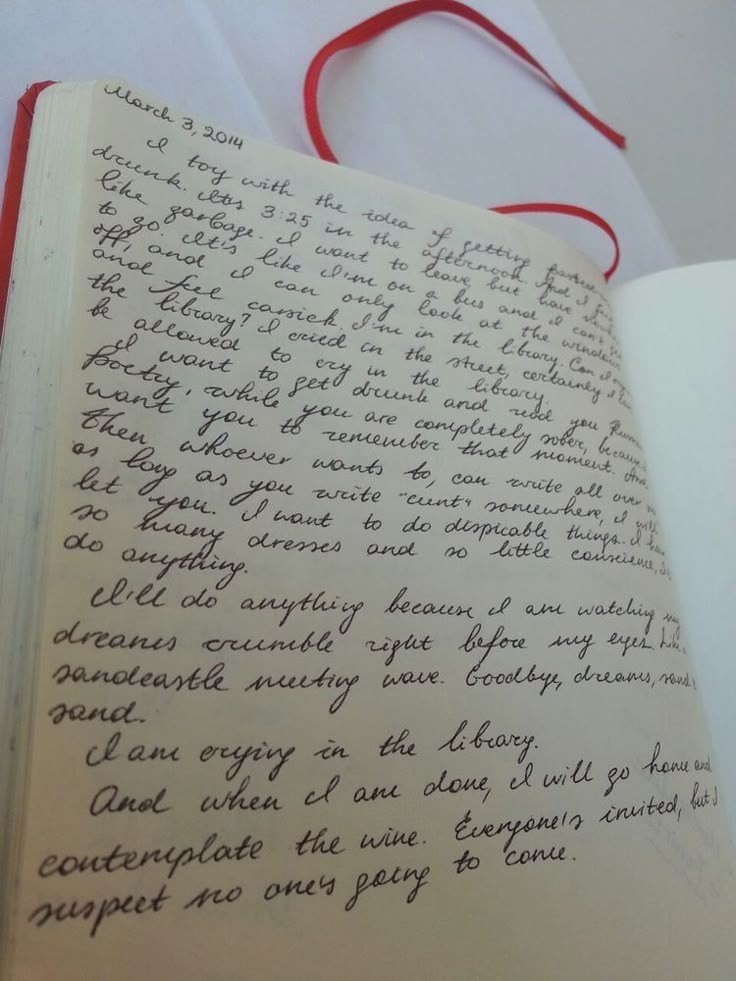 March 3, 2014
I toy with the idea of getting
drunk. It's 3:25 in the afternoon. And I
like garbage. I want to leave but have
to go. It's like I'm on a bus and I can't
off, and I can only look at the
and feel carsick. I'm in the library. Can I
the library? I cried in the street, certainly I
be allowed to cry in the library.
I want to get drunk and read you
poetry, while you are completely sober, because
want you to remember that moment. And
then whoever wants to, can write all over
as long as you write "cunt" somewhere, I will
let you. I want to do dispicable things. I have
so many dresses and so little conscience,
do anything.
I'll do anything because I am watching my
dreams crumble right before my eyes. Like
sandcastle meeting wave. Goodbye, dreams,
sand.
I am crying in the library.
And when I am done, I will go home and
contemplate the wine. Everyone's invited, but I
suspect no one's going to come.